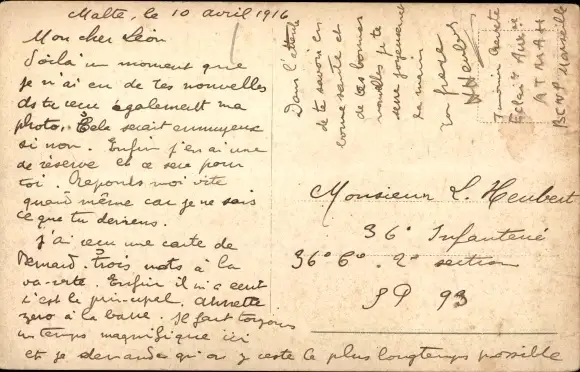 Malte, le 10 avril 1916
Mon cher Léon
Voilà un moment que
je n'ai eu de tes nouvelles
as tu recu également ma
photo. Cela serait ennuyeux
si non. Enfin j'en ai une
de réserve et ce sera pour
toi. Reponds moi vite
quand même car je ne sais
ce que tu deviens.
J'ai recu une carte de
Bernard. Trois mots à la
va-vite. Enfin il m'a ecrit
c'est le principal.
zero à la barre. Il fait toujours
un temps magnifique ici
et je demande qu'on y reste le plus longtemps possible
Dans l'attente
de te savoir en
bonne santé et
de tes bonnes
nouvelles je te
serre joyeusement
la main
ton frère
Heubert
Eclair Aux
BCNP Marseille
Monsieur L. Heubert
36° Infanterie
36° C°. 2° section
SP 93